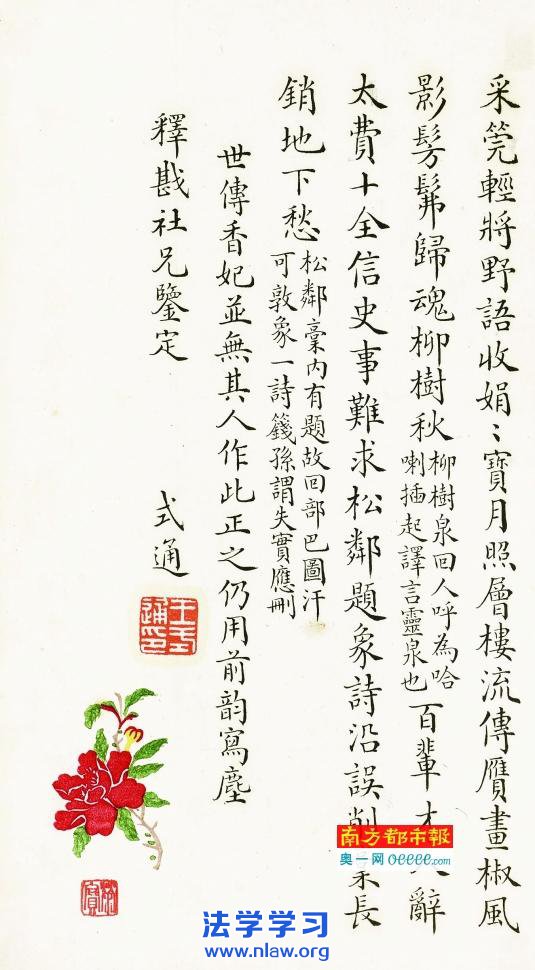 采筦輕將野語收娟〻寶月照層樓流傳贋畫椒風
影髣髴歸魂柳樹秋
柳樹泉回人呼為哈
喇插起譯言靈泉也
百輩 辭
太費十全信史事難求松鄰題象詩沿誤削 長
銷地下愁
松鄰稾內有題故回部巴圖汗
可敦象一詩籛孫謂失實應刪
世傳香妃並無其人作此正之仍用前韵寫塵
釋戡社兄鑒定
式通
王式通印
南方都市報
奥一网 oeeee.com
法学学习
www.nlaw.org